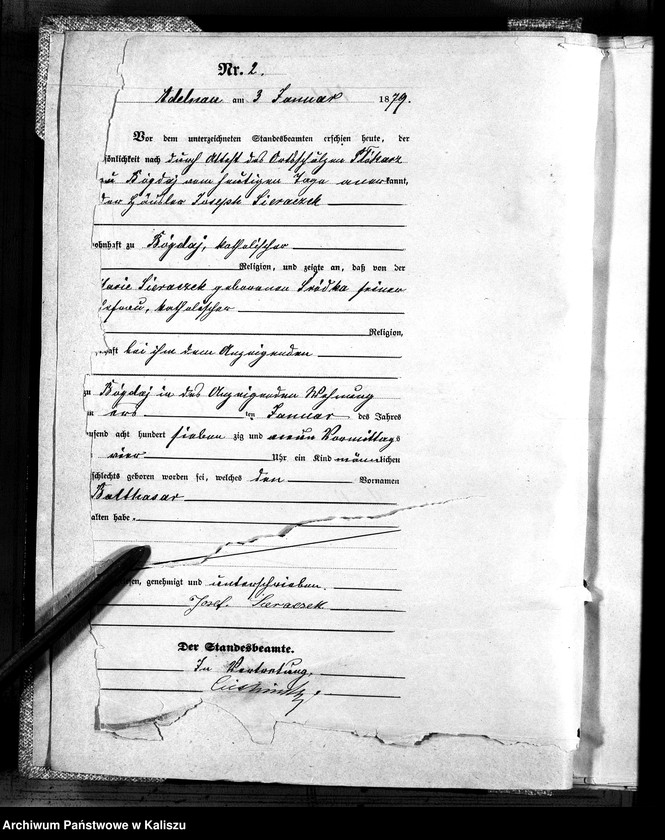 Nr. 2.
Adelnau am 3 Januar 1879.
Vor dem unterzeichneten Standesbeamten erschien heute, der
sönlichkeit nach durch Attest des Ortsschulzen
Bógdaj vom heutigen Tage anerkannt,
der Häusler Joseph Sieraczek
ohnhaft zu Bógdaj, katholischer
Religion, und zeigte an, daß von der
Marie Sieraczek geborenen Sródka seiner
Ehefrau, katholischer
Religion,
haft bei ihm dem Anzeigenden
zu Bógdaj in des Anzeigenden Wohnung
ers ten Januar des Jahres
ausend acht hundert sieben zig und neun Vormittags
vier Uhr ein Kind männlichen
schlechts geboren worden sei, welches den Vornamen
Balthasar
alten habe.
sen, genehmigt und unterschrieben.
Josef Sieraczek
Der Standesbeamte.
In Vertretung.
Archiwum Państwowe w Kaliszu